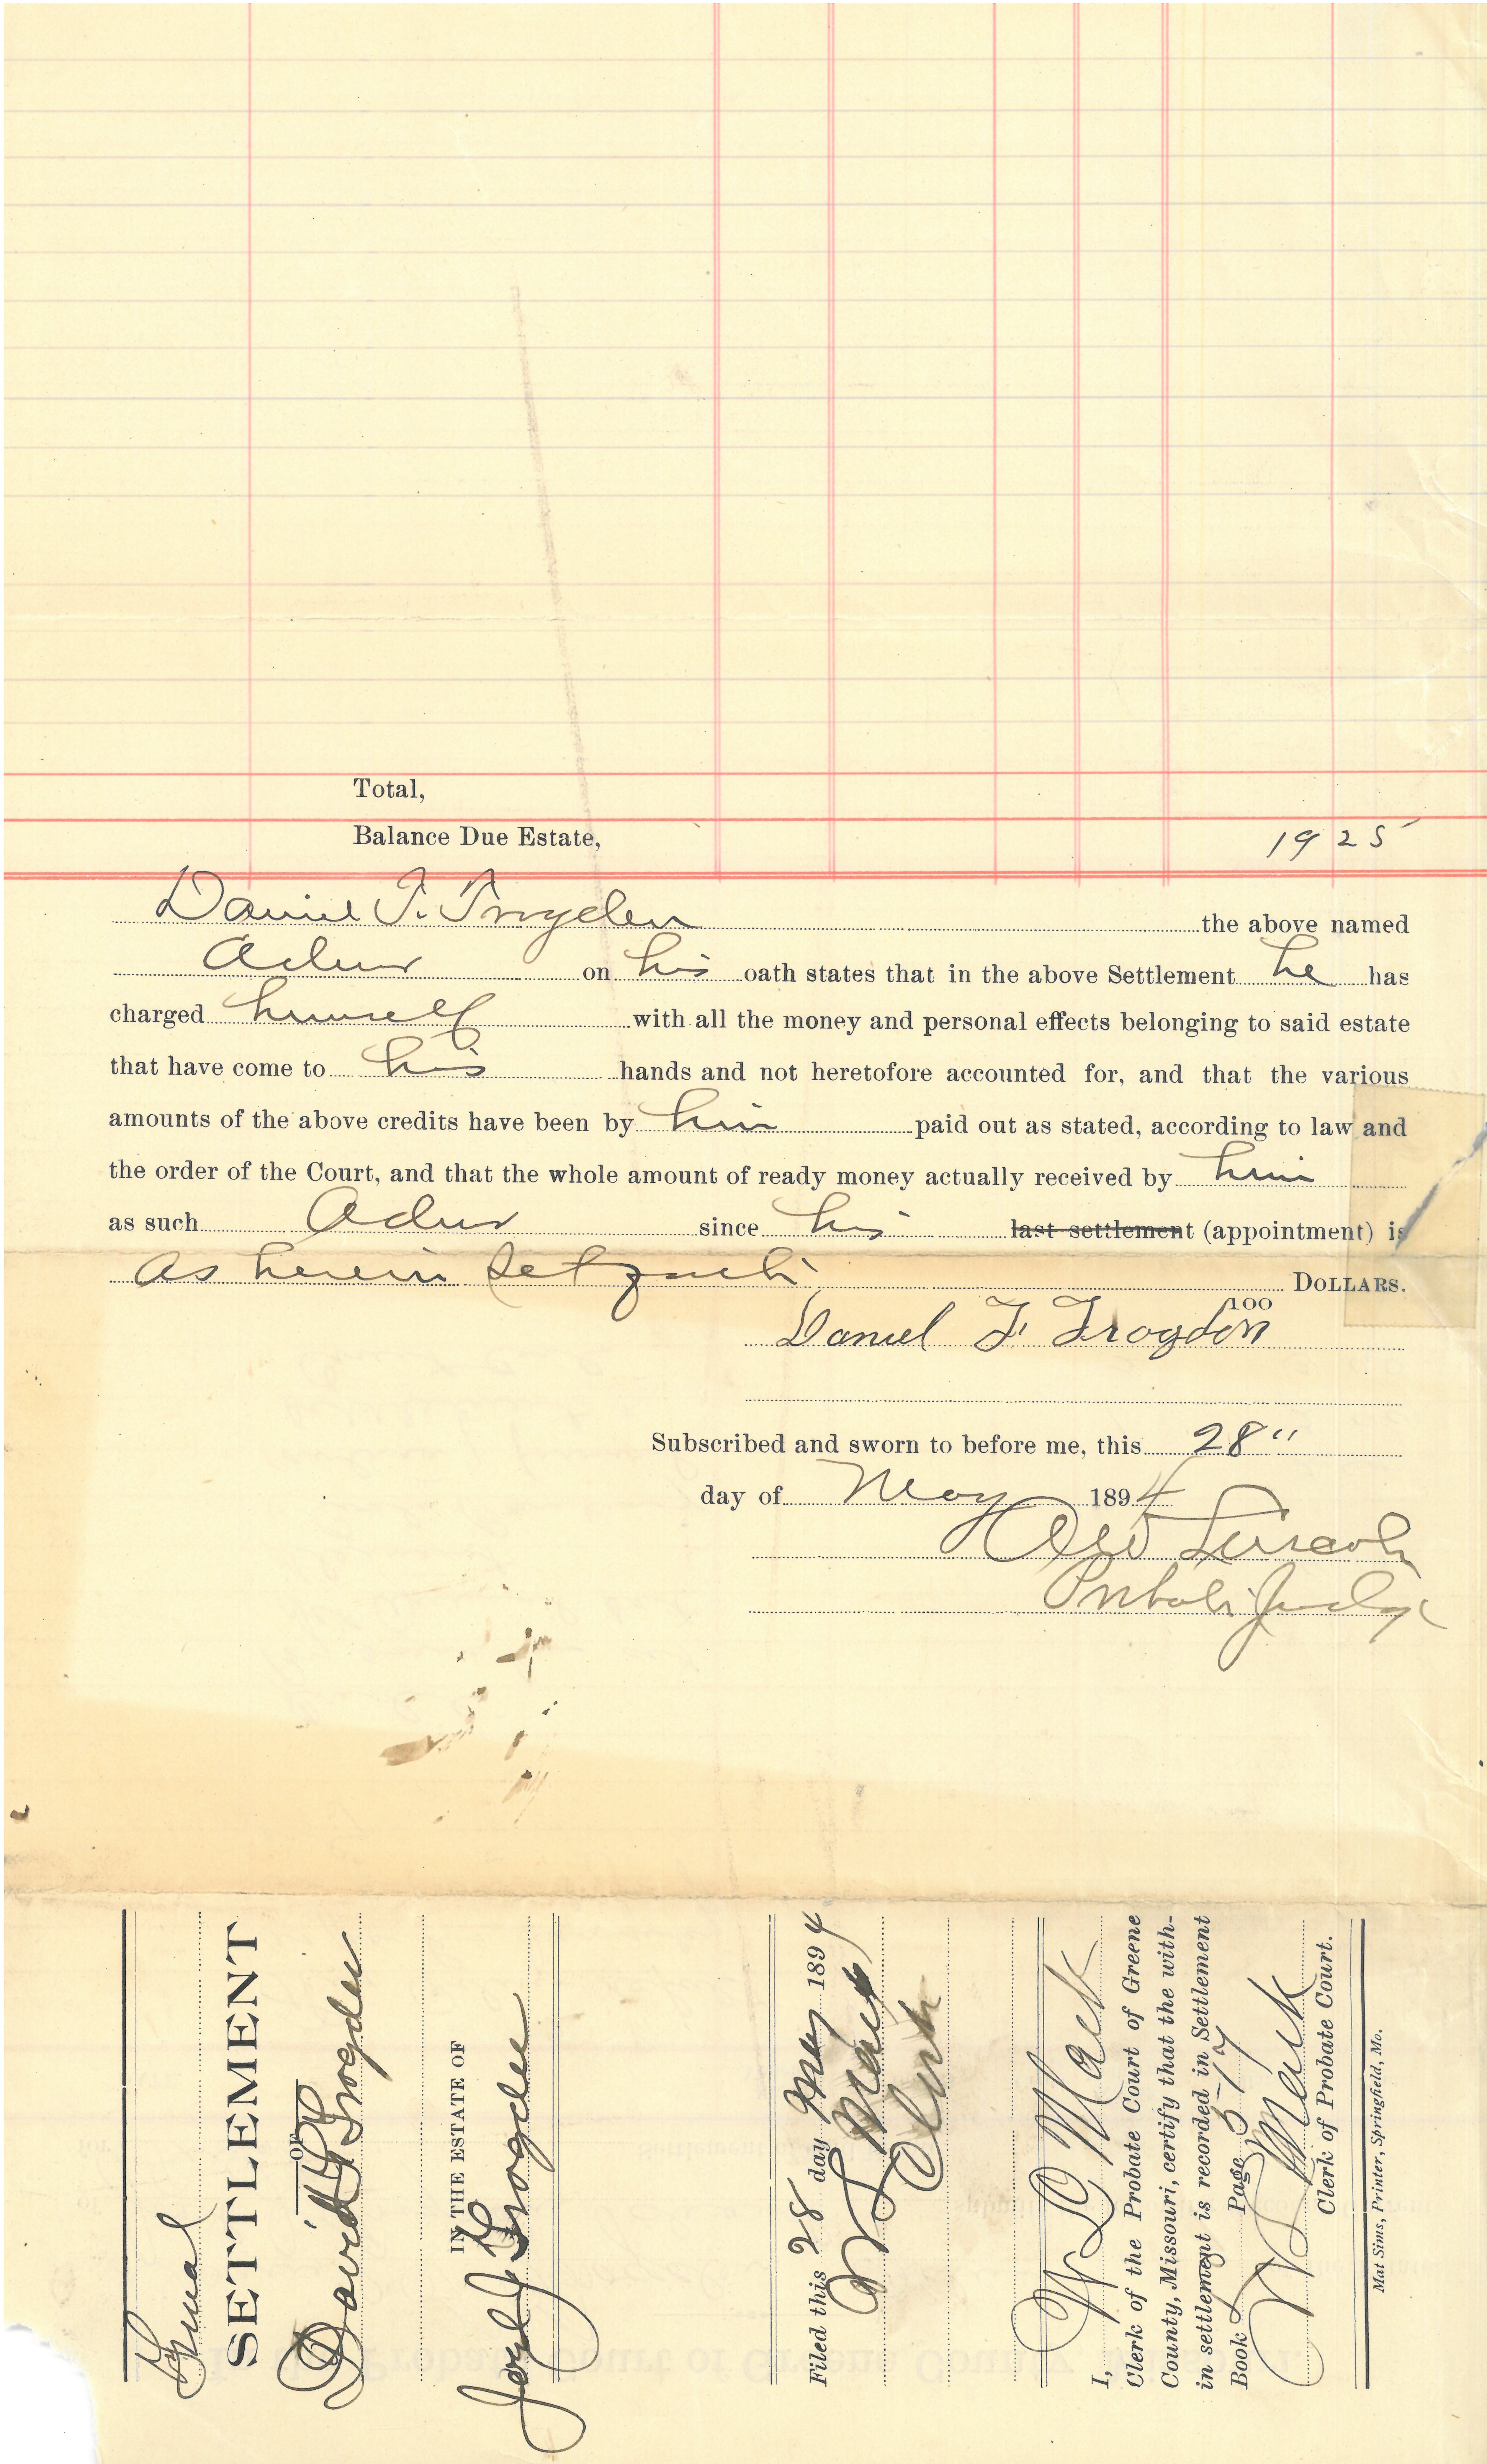 Total,
Balance Due Estate, 19 25
Daniel F. Trogden the above named
Admr on his oath states that in the above Settlement he has
charged himself with all the money and personal effects belonging to said estate
that have come to his hands and not heretofore accounted for, and that the various
amounts of the above credits have been by him paid out as stated, according to law and
the order of the Court, and that the whole amount of ready money actually received by him
as such Admr since his last settlement (appointment) is
as herein set forth DOLLARS.
100
Daniel F. Trogdon
Subscribed and sworn to before me, this 28"
day of May 1894
Lincoln
Probate Judge
Final
SETTLEMENT
OF
Trogden
IN THE ESTATE OF
Trogden
Filed this 28 day May 1894
W D Mack
Clerk
I, W D Mack
Clerk of the Probate Court of Greene
County, Missouri, certify that the with-
in settlement is recorded in Settlement
Book Page
W D Mack
Clerk of Probate Court.
Mat Sims, Printer, Springfield, Mo.